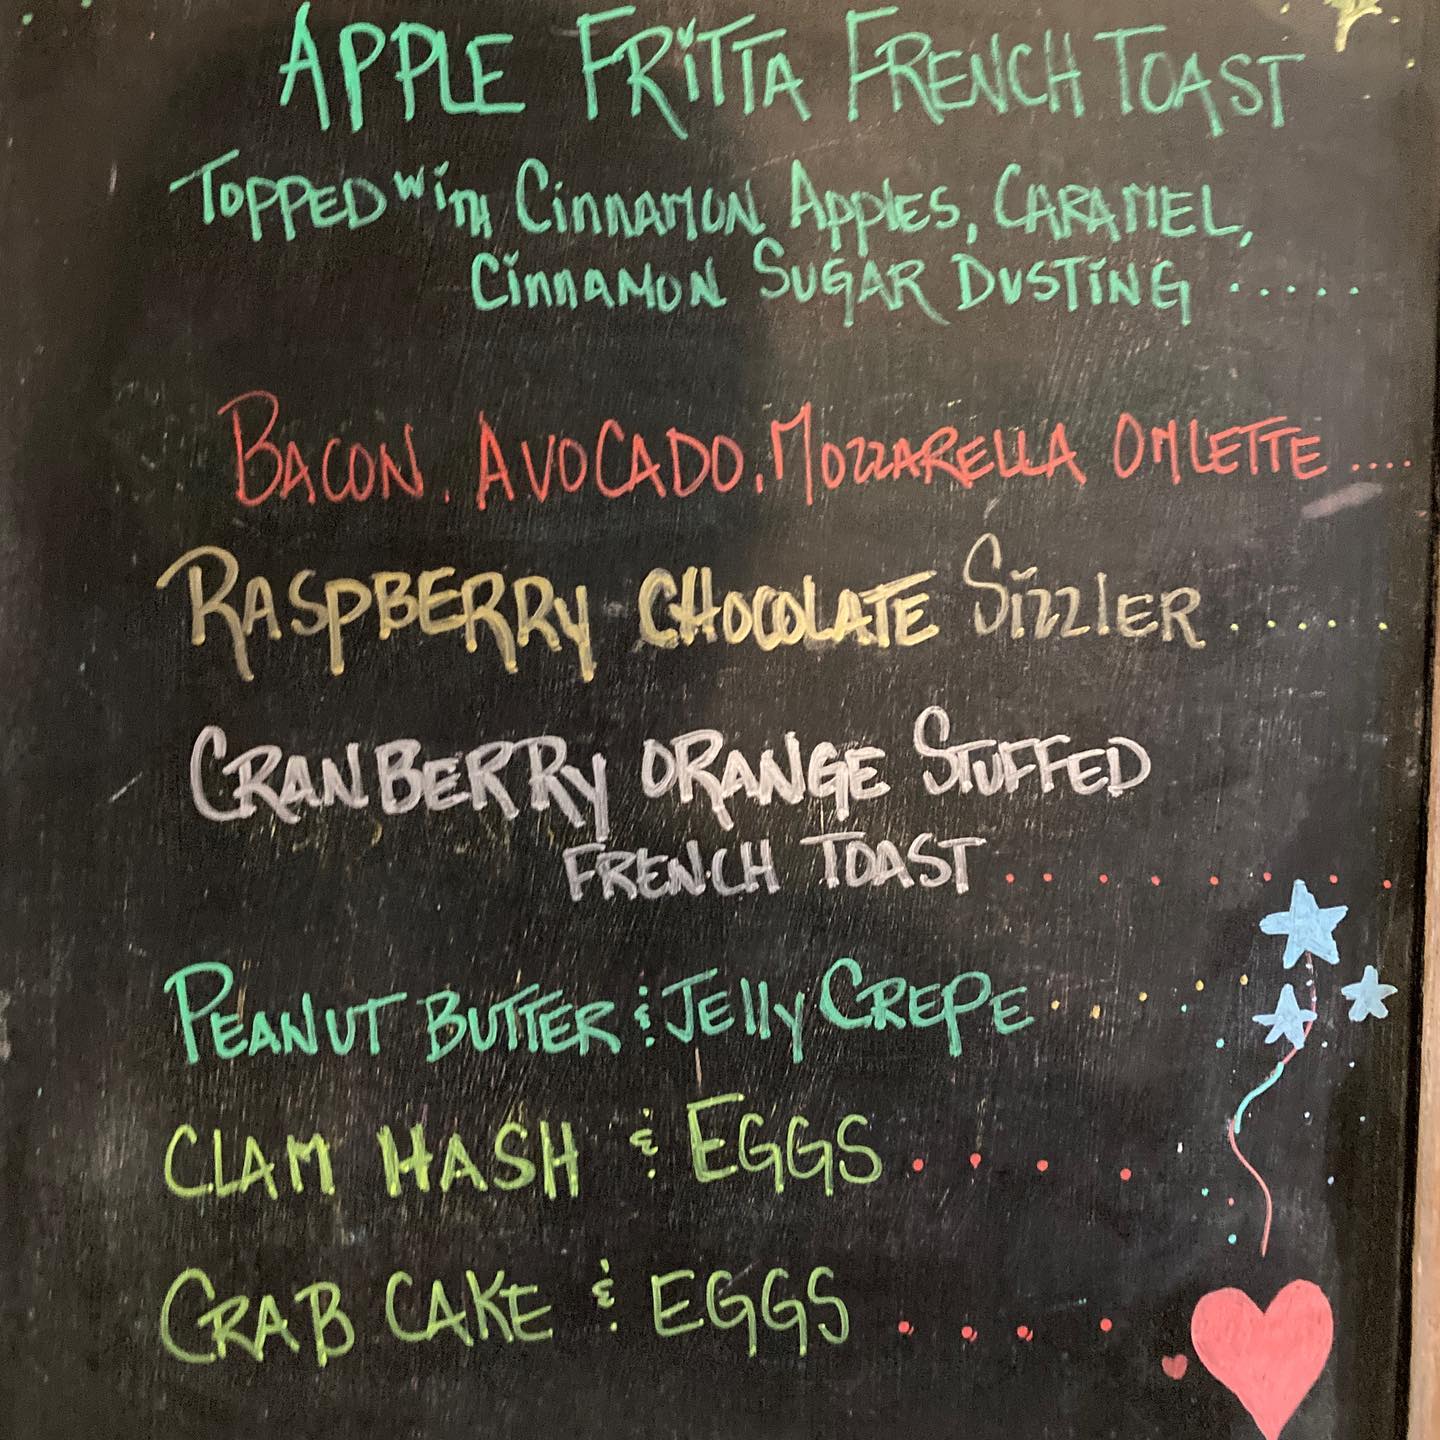 APPLE FRiTTA FRENCH TOAST
TOPPED wiTH CinnAMON Apples, CARAMEL,
CinnAMON SUGAR DUSTiNG .....
BACON, AVOCADO, MOZZARELLA OMLETTE ....
RASPBERRY CHOCOLATE SizzlER .....
CRANBERRY ORANGE STUFFED
FRENCH TOAST ........
PEANUT BUTTER & JElly CREPE ......
CLAM HASH & EGGS ....
CRAB CAKE & EGGS ....